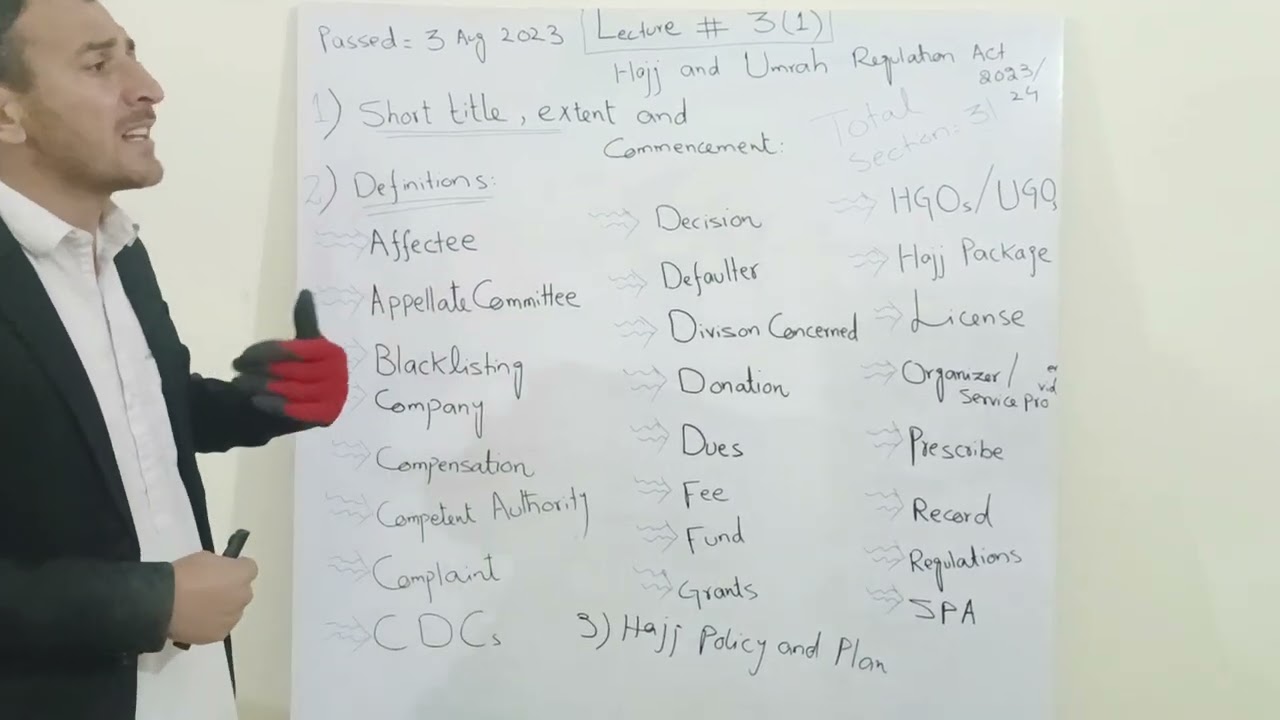 Passed = 3 Aug 2023
Lecture # 3(1)
Hajj and Umrah Regulation Act
2023/
24
1) Short title, extent and
Commencement:
Total
section: 31
2) Definitions:
Affectee
Appellate Committee
Blacklisting
Company
Compensation
Competent Authority
Complaint
CDCs
Decision
Defaulter
Divison Concerned
Donation
Dues
Fee
Fund
Grants
HGOs/UGOs
Hajj Package
License
Organizer/
Service Provider
Prescribe
Record
Regulations
SPA
3) Hajj Policy and Plan